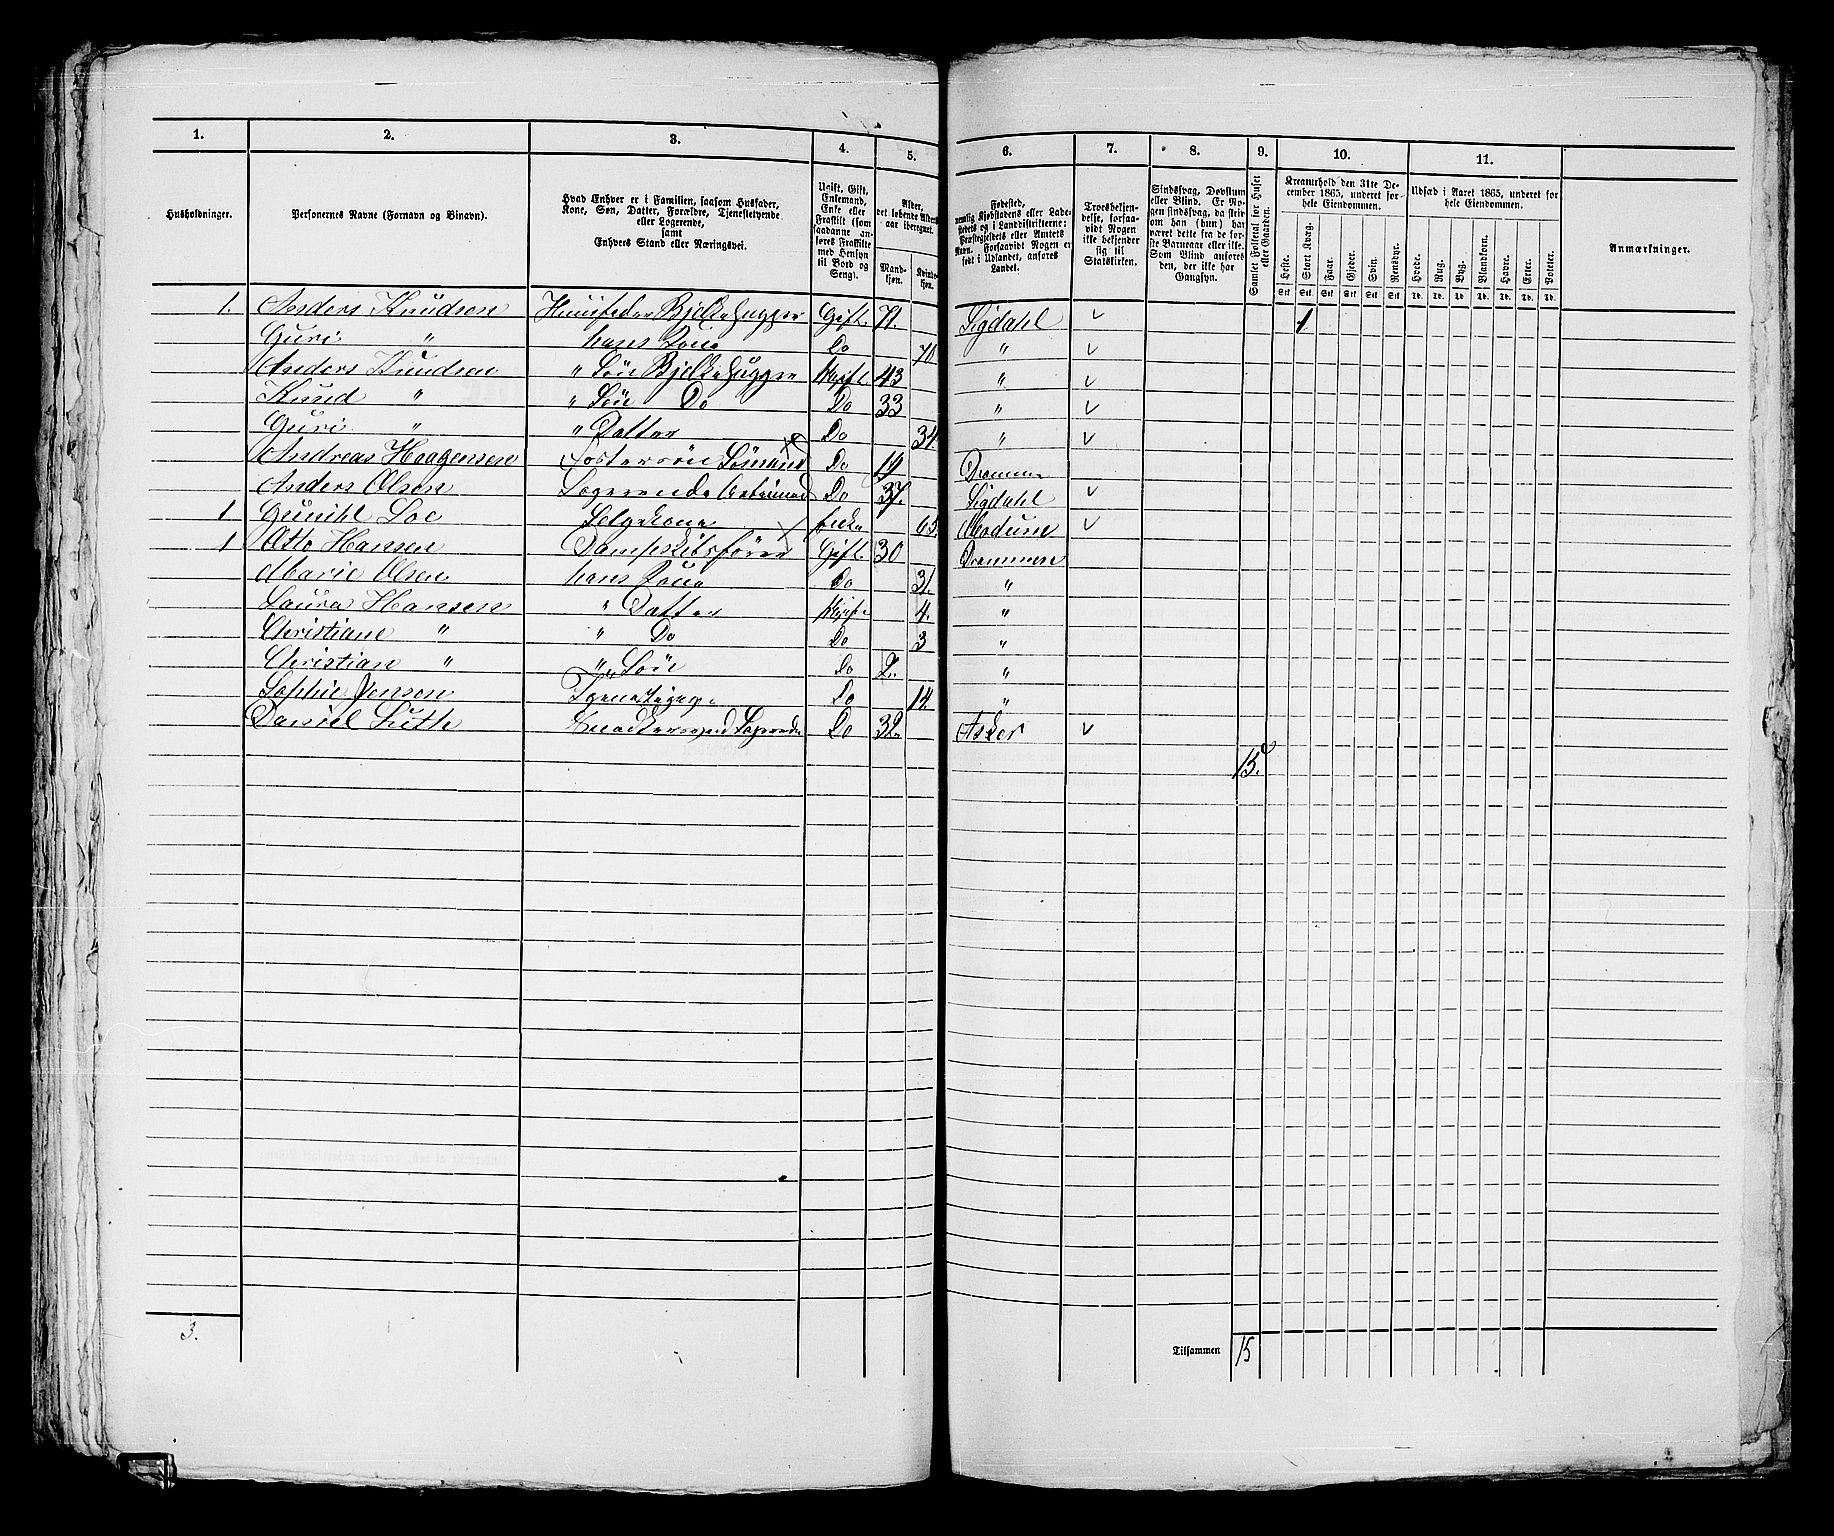 1. 2. 3. 4. 5. 6. 7. 8. 9. 10. 11.
Husholdninger.
Personernes Navne (Fornavn og Binavn).
Hvad Enhver er i Familien, saasom Husfader,
Kone, Søn, Datter, Forældre, Tjenestetyende
eller Logerende,
samt
Enhvers Stand eller Næringsvei.
Ugift, Gift,
Enkemand,
Enke eller
Fraskilt (som
saadanne an-
føres Fraskilte
med Hensyn
til Bord og
Seng).
Alder,
det løbende Alders-
aar iberegnet.
Mand-
kjøn.
Kvinde-
kjøn.
Fødested,
nemlig Kjøbstadens eller Lade-
stedets og i Landdistrikterne:
Præstegjeldets eller Amtets
Navn. Forsaavidt Nogen er
født i Udlandet, anføres
Landet.
Troesbekjen-
delse, forsaa-
vidt Nogen
ikke bekjender
sig til
Statskirken.
Sindssvag, Døvstum
eller Blind. Er No-
gen sindssvag, da skriv
om han (hun) har
været dette fra de før-
ste Barneaar eller ikke.
Som Blind anføres
den, der ikke har
Gangsyn.
Samlet Folketal for Huset
eller Gaarden.
Kreaturhold den 31te De-
cember 1865, underet for-
hele Eiendommen.
Heste. Stort Kvæg. Faar. Gjeder. Svin. Rensdyr.
Stk Stk Stk Stk Stk Stk
Udsæd i Aaret 1865, underet for
hele Eiendommen.
Hvede. Rug. Byg. Blandkorn. Havre. Erter. Poteter.
Td. Td. Td. Td. Td. Td. Td.
Anmærkninger.
1. Anders Knudsen Huusfader Bjelkehugger Gift. 71. Sigdahl 1
Guri " hans Kone Do 70 "
Anders Knudsen " Søn Bjelkehugger Ugift 43 "
Knud " " Søn Do Do 33 "
Guri " " Datter Do 34. "
Andreas Haagensen Fostersøn Sømand Do 19 Drammen
Anders Olsen Logerende Do 37. Sigdahl
1 Gunild Loe Enke 65. Modum
1 Otto Hansen Dampskibsfører Gift. 30 Drammen
Marie Olsen hans Kone Do 31. "
Laura Hansen " Datter Ugift 4. "
Christiane " " Do Do 3 "
Christian " " Søn Do 2. "
Sophie Jonson Tjenestepige Do "
Daniel Do 32. Asker
15.
3.
Tilsammen 15